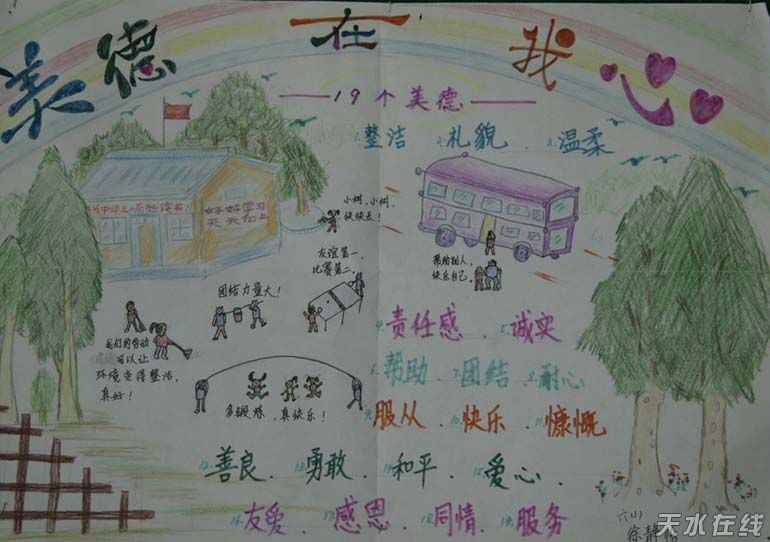 美德在我心
19个美德
1.整洁 2.礼貌 3.温柔
好好学习
天天向上
小树,小树,
快快长!
友谊第一,
比赛第二。
帮助别人,
快乐自己。
团结力量大!
我们的劳动
可以让
环境变得整洁,
真好!
多锻炼,真快乐!
4.责任感 5.诚实
6.帮助 7.团结 8.耐心
9.服从 10.快乐 11.慷慨
12.善良 13.勇敢 14.和平 15.爱心
16.友爱 17.感恩 18.同情 19.服务
六(1)
徐静
天水在线